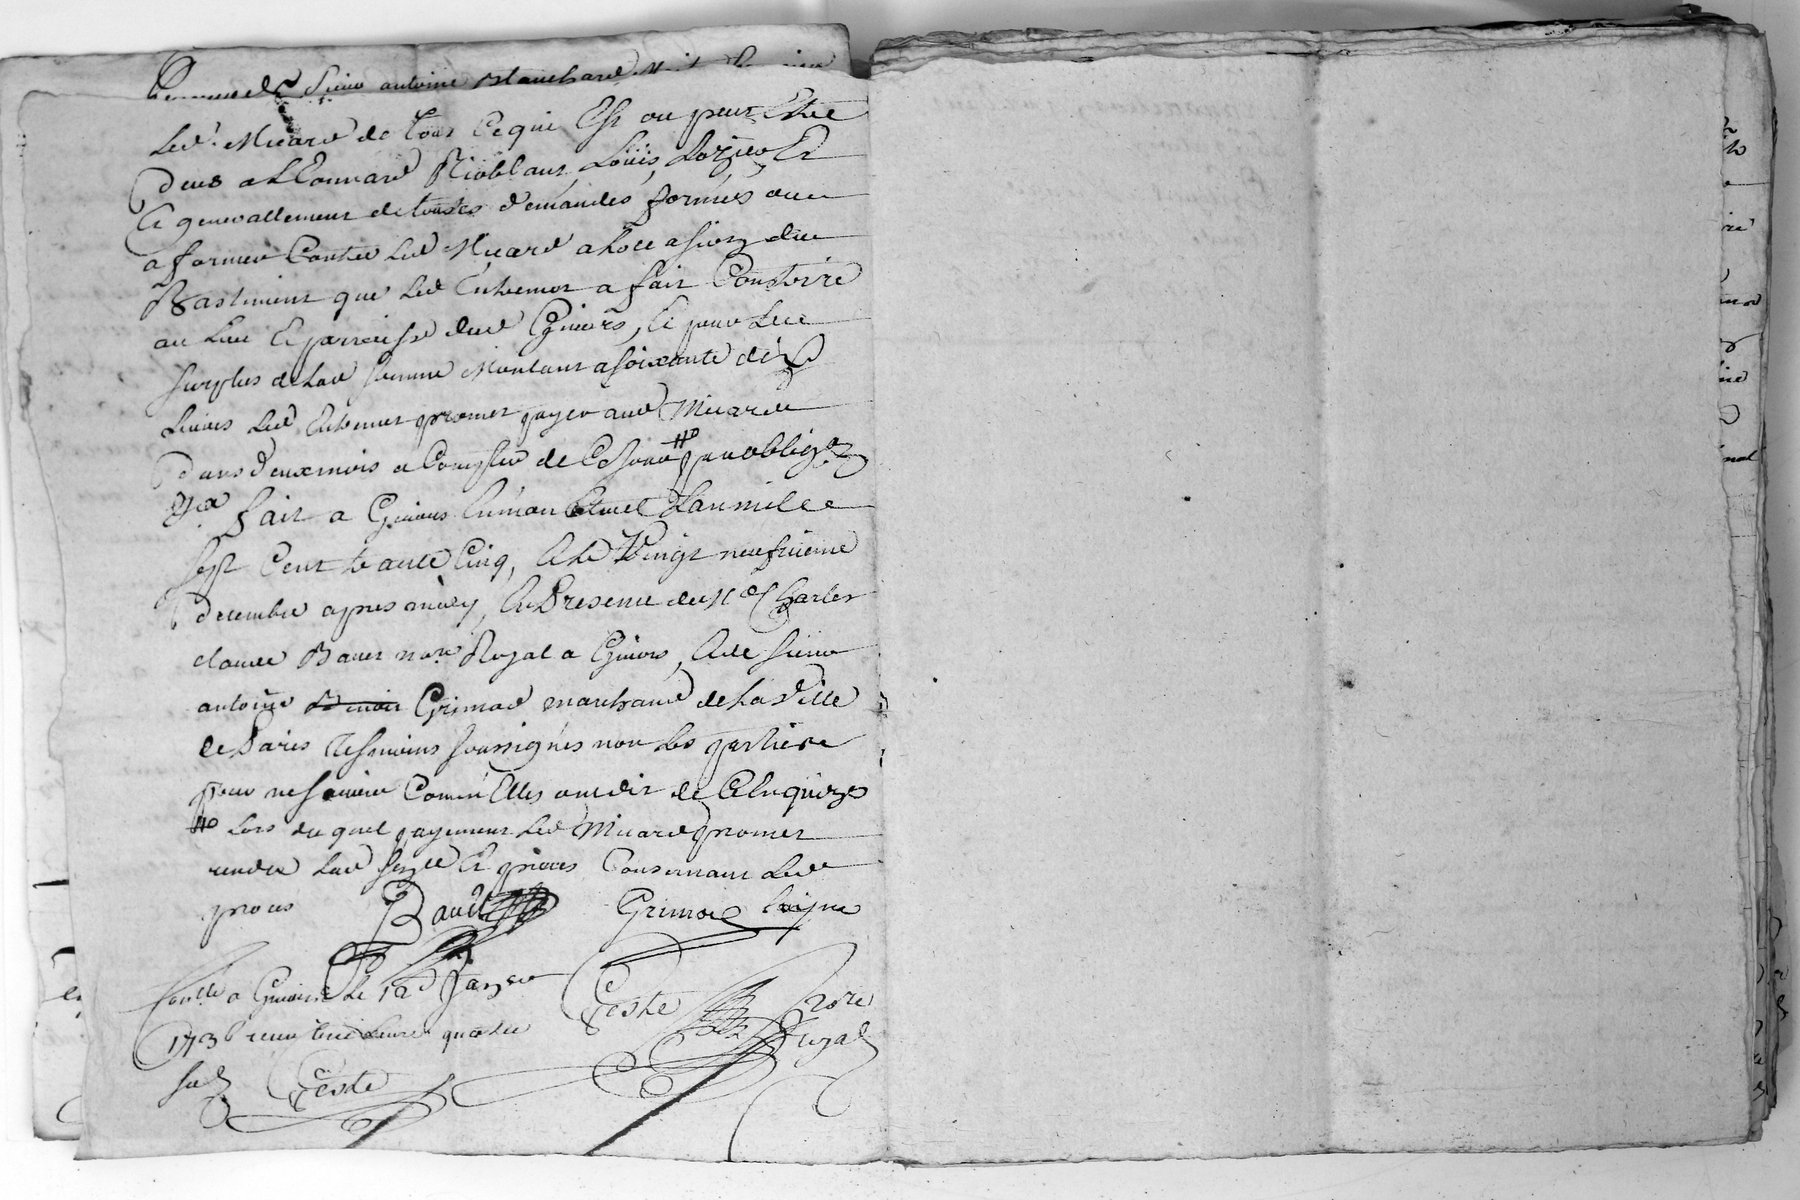 Sieur antoine Blanchard
Led. Micard de tous Ce qui Est ou peut Estre
deub a Leonnard Rioblanc, Loüis, Lozier, Et
Et generallement de toutes demandes formés ou
a former Contre Led Micard a Loccasion du
Bastiment que Led a fait Constire
au Lieu Et parroisse dud Givors, Et pour Le
surplus de Lad somme Montant a soixante dix
Livres Led promet payer aud Micard
dans deux mois a Compter de Ce Jour par obligon
&ca fait a Givors En mon Etude Lan mille
sept Cent trante Cinq, Et Le Vingt neufvieme
decembre apres midy, En Presence de Me Charles
claude Bauet nore Royal a Givors, Et de sieur
antoine Grimod marchand de La Ville
de Paris Tesmoins soussignés non Les parties
pour ne scavoir Comme Elles ont dit de Ce Enquizes
Lors du quel payement Led Micard promet
rendre Lad Et pieces Concernant Led
proces Bauet Grimod
Conlle a Givors Le Janver
173 receu livre quatre
sols Coste
Coste nore
Royal